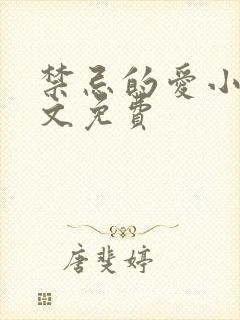 禁忌的愛小
文免費
唐斐婷